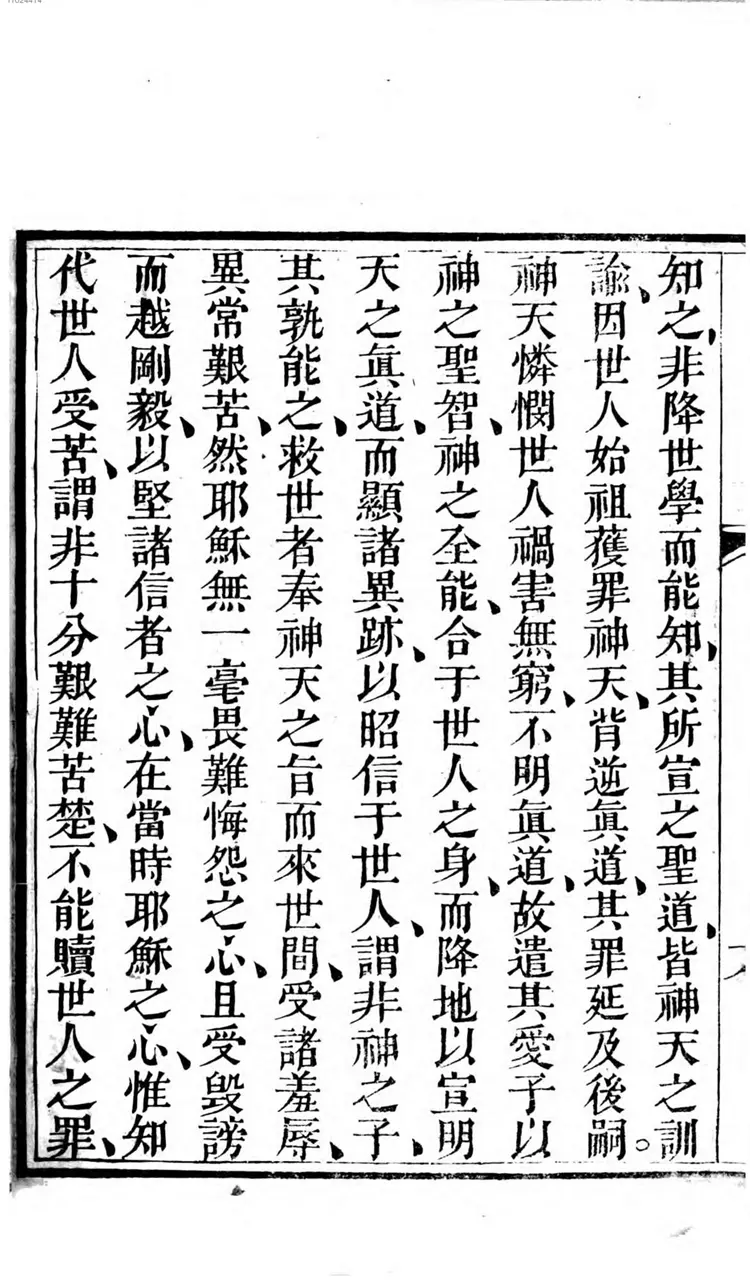 11024414
知之、非降世學而能知、其所宣之聖道、皆神天之訓
諭、因世人始祖獲罪神天、背逆眞道、其罪延及後嗣。
神天憐憫世人禍害無窮、不明眞道、故遣其愛子以
神之聖智、神之全能、合于世人之身、而降地以宣明
天之眞道、而顯諸異跡、以昭信于世人、謂非神之子、
其孰能之、救世者奉神天之旨而來世間、受諸羞辱、
異常艱苦、然耶穌無一毫畏難悔怨之心、且受毀謗
而越剛毅、以堅諸信者之心、在當時耶穌之心、惟知
代世人受苦、謂非十分艱難苦楚、不能贖世人之罪、